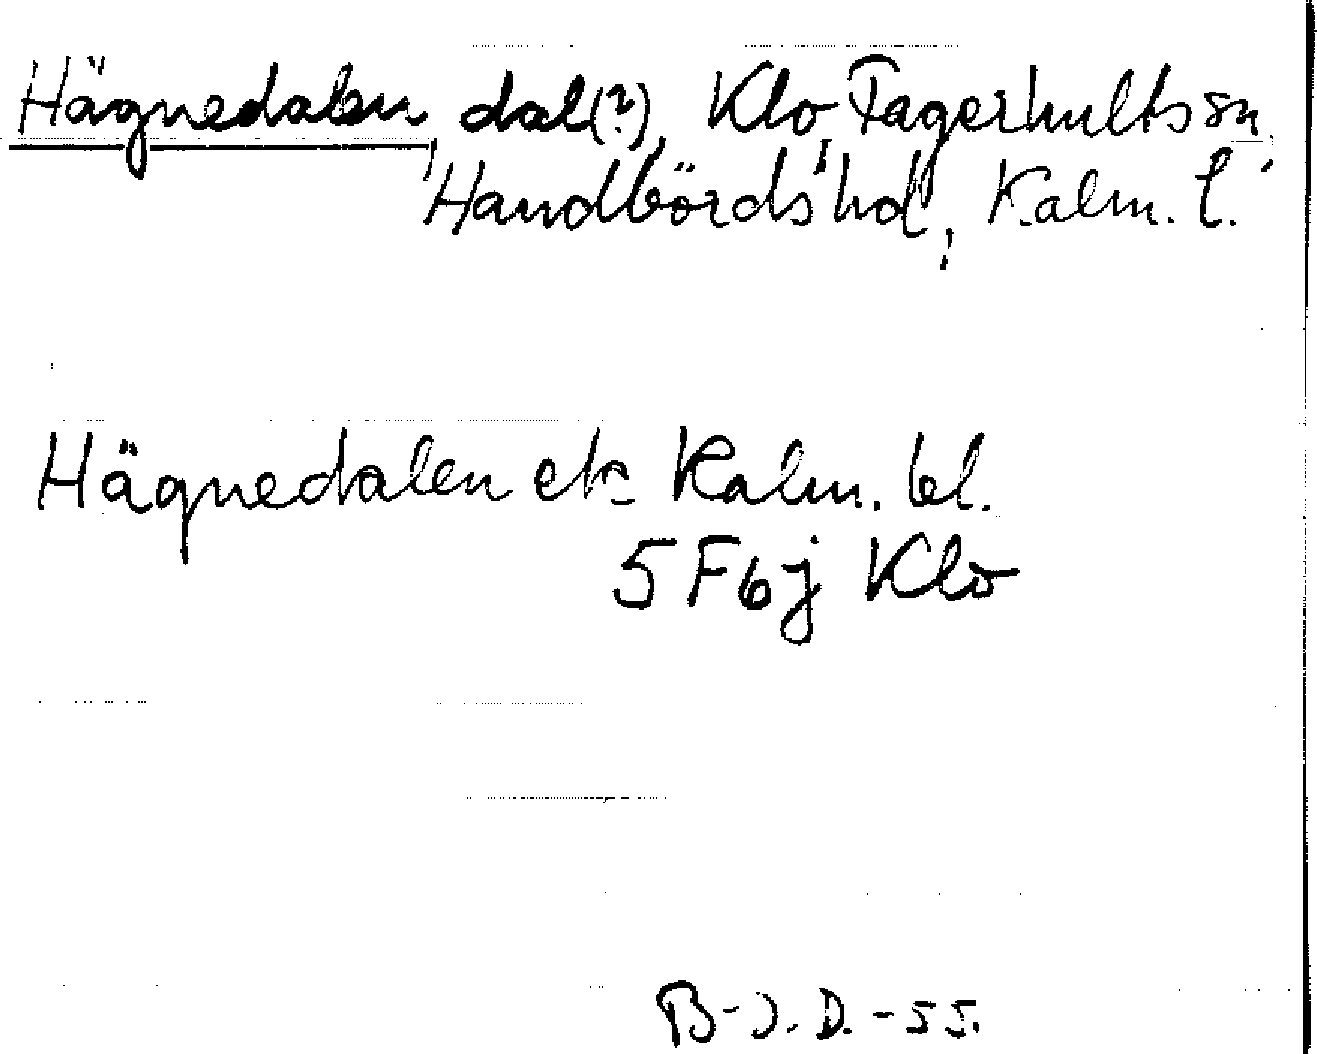 Hägnedalen, dal(?), Klo, Fagerhults sn,
Handbörds hd, Kalm. l.
Hägnedalen ek Kalm. bl.
5 F 6 j Klo
B-J. D. -55.